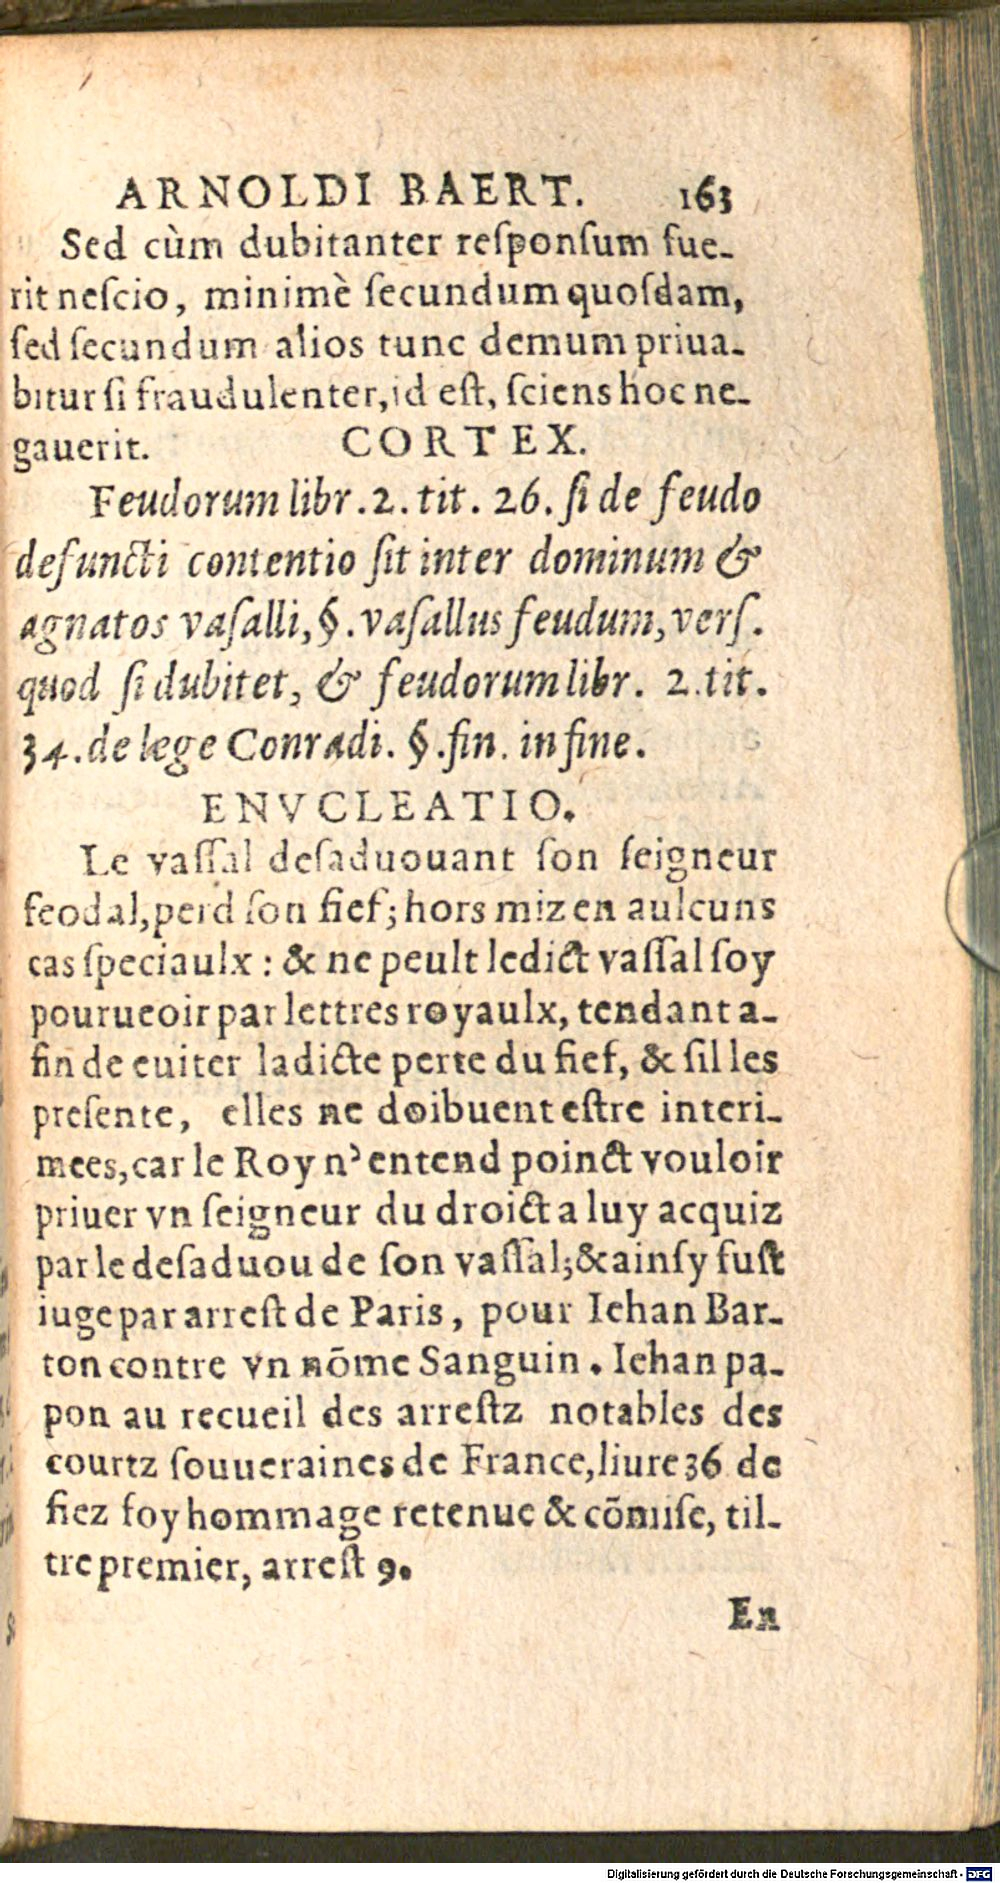 ARNOLDI BAERT. 163
Sed cùm dubitanter reſponſum fue-
rit neſcio, minimè ſecundum quoſdam,
ſed ſecundum alios tunc demum priua-
bitur ſi fraudulenter, id eſt, ſciens hoc ne-
gauerit. CORTEX.
Feudorum libr. 2. tit. 26. ſi de feudo
defuncti contentio ſit inter dominum &
agnatos vaſalli, §. vaſallus feudum, verſ.
quod ſi dubitet, & feudorum libr. 2. tit.
34. de lege Conradi. §. fin. in fine.
ENVCLEATIO.
Le vaſſal deſaduouant ſon ſeigneur
feodal, perd ſon fief; hors miz en aulcuns
cas ſpeciaulx : & ne peult ledict vaſſal ſoy
pourueoir par lettres royaulx, tendant a-
fin de euiter ladicte perte du fief, & ſil les
preſente, elles ne doibuent eſtre interi-
mees, car le Roy n'entend poinct vouloir
priuer vn ſeigneur du droict a luy acquiz
par le deſaduou de ſon vaſſal; & ainſy fuſt
iuge par arreſt de Paris, pour Iehan Bar-
ton contre vn nõme Sanguin. Iehan pa-
pon au recueil des arreſtz notables des
courtz ſouueraines de France, liure 36 de
fiez foy hommage retenue & cõmiſe, til-
tre premier, arreſt 9.
En
Digitalisierung gefördert durch die Deutsche Forschungsgemeinschaft - DFG